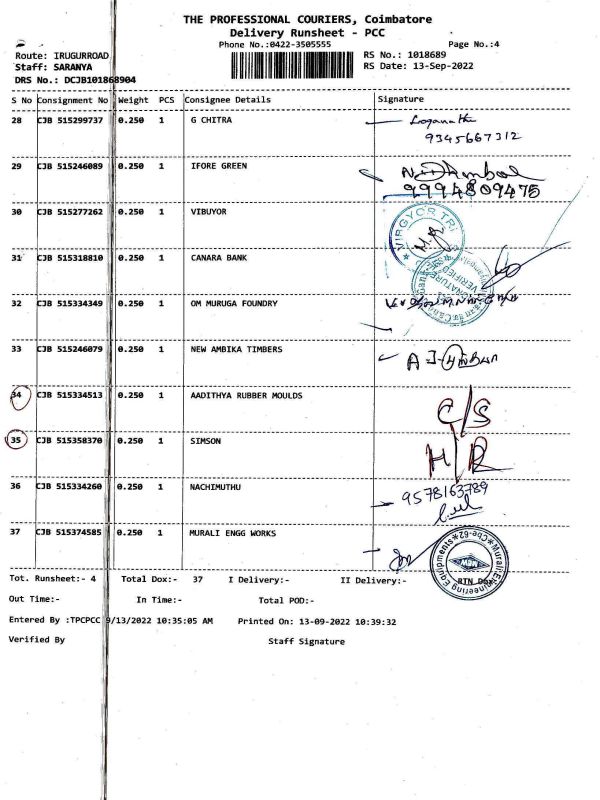 THE PROFESSIONAL COURIERS, Coimbatore
Delivery Runsheet - PCC
Phone No.:0422-3505555
Page No.:4
Route: IRUGURROAD
RS No.: 1018689
Staff: SARANYA
RS Date: 13-Sep-2022
DRS No.: DCJB101868904
S No Consignment No Weight PCS Consignee Details Signature
28 CJB 515299737 0.250 1 G CHITRA
9345667312
29 CJB 515246089 0.250 1 IFORE GREEN
9994809475
30 CJB 515277262 0.250 1 VIBUYOR
VIBGYOR TRI
31 CJB 515318810 0.250 1 CANARA BANK
32 CJB 515334349 0.250 1 OM MURUGA FOUNDRY
33 CJB 515246079 0.250 1 NEW AMBIKA TIMBERS
34 CJB 515334513 0.250 1 AADITHYA RUBBER MOULDS
C/S
35 CJB 515358370 0.250 1 SIMSON
H/R
36 CJB 515334260 0.250 1 NACHIMUTHU
9578163789
37 CJB 515374585 0.250 1 MURALI ENGG WORKS
Tot. Runsheet:- 4 Total Dox:- 37 I Delivery:- II Delivery:- RTN Dox
Out Time:- In Time:- Total POD:-
Entered By :TPCPCC 9/13/2022 10:35:05 AM Printed On: 13-09-2022 10:39:32
Verified By Staff Signature